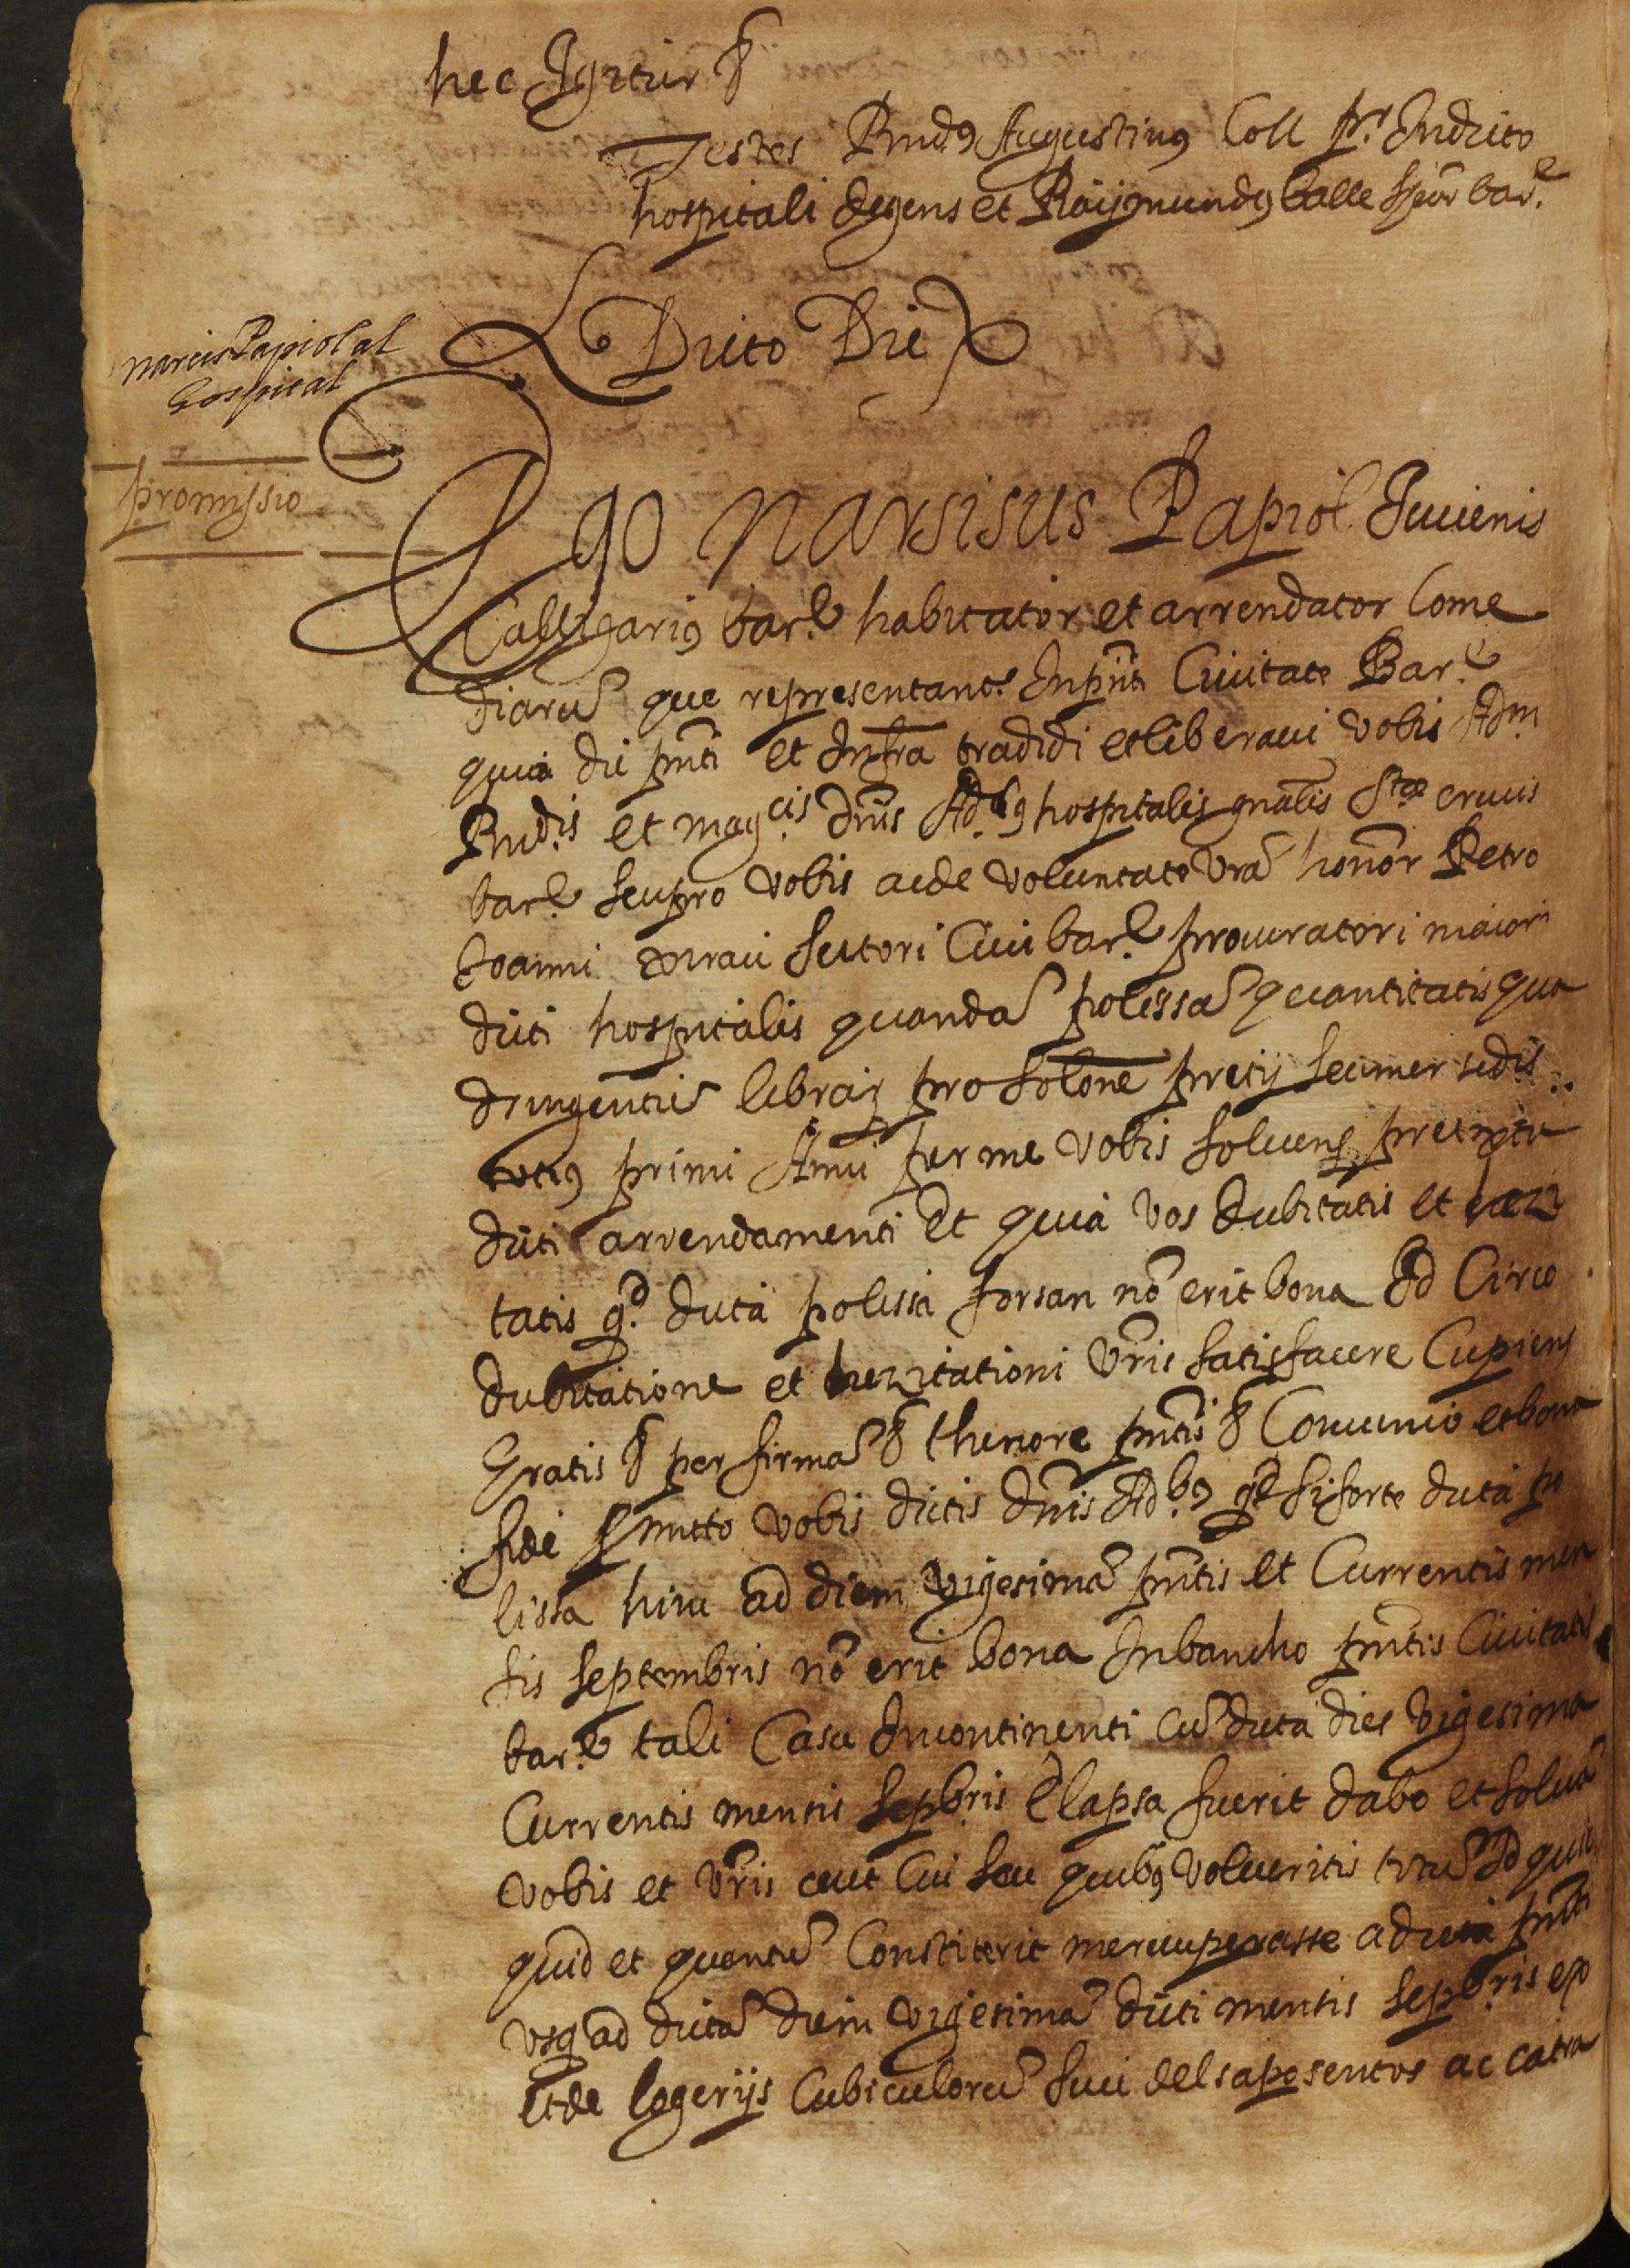 hec Igitur &
Testes Rnd9 Augustin9 Coll pr. Indicto
hospitali degens et Raijmund9 balle bar.e
Dicto Die
narcis Papiol al
hospital
promissio
Ego Narsisus Papiol Iuvenis
Calligari9 bar.e habitator et arrendator Come
diarū que representant.r Inpñti Civitate Bar.e
quia die pñti et Infra tradidi et liberavi vobis Adm
Rnd.is et mag.cis dñis Ad.b9 hospitalis gnãlis S.tæ crucis
bar.e seu pro vobis ac de voluntate vrã honor Petro
Joanni sutori Civi bar.e procuratori maiori
dicti hospitalis quandā polissā quantitatis qua
dringentis libraꝝ pro solõne precij seu mersedis
toti9 primi Anni per me vobis solvens
dicti arrendamenti Et quia vos dubitatis et hezi
tatis q.d dicta polissa forsan nõ erit bona Id Circo
dubitatione et hezitationi vrĩs satisfacere Cupiens
Gratis & per firmā & thenore pñtis & Convenio et bona
fide pmitto vobis dictis dñis Ad.b9 qd si forte dicta po
lissa hinc ad diem vigesimā pñtis et Currentis men
sis septembris nõ erit bona Inbancho pñtis Civitatis
bar.e tali Casu Incontinenti cū dicta dies vigesima
Currentis mensis sepbris elapsa fuerit dabo et solvā
vobis et vrĩs aut Cui seu quib9 volueritis totū Id quic
quid et quantū Constiterit me recuperasse a die pñti
usq ad dictā diem vigesimā dicti mensis sepbris ex
et de logerijs Cubiculorū sive dels aposentos ac catra